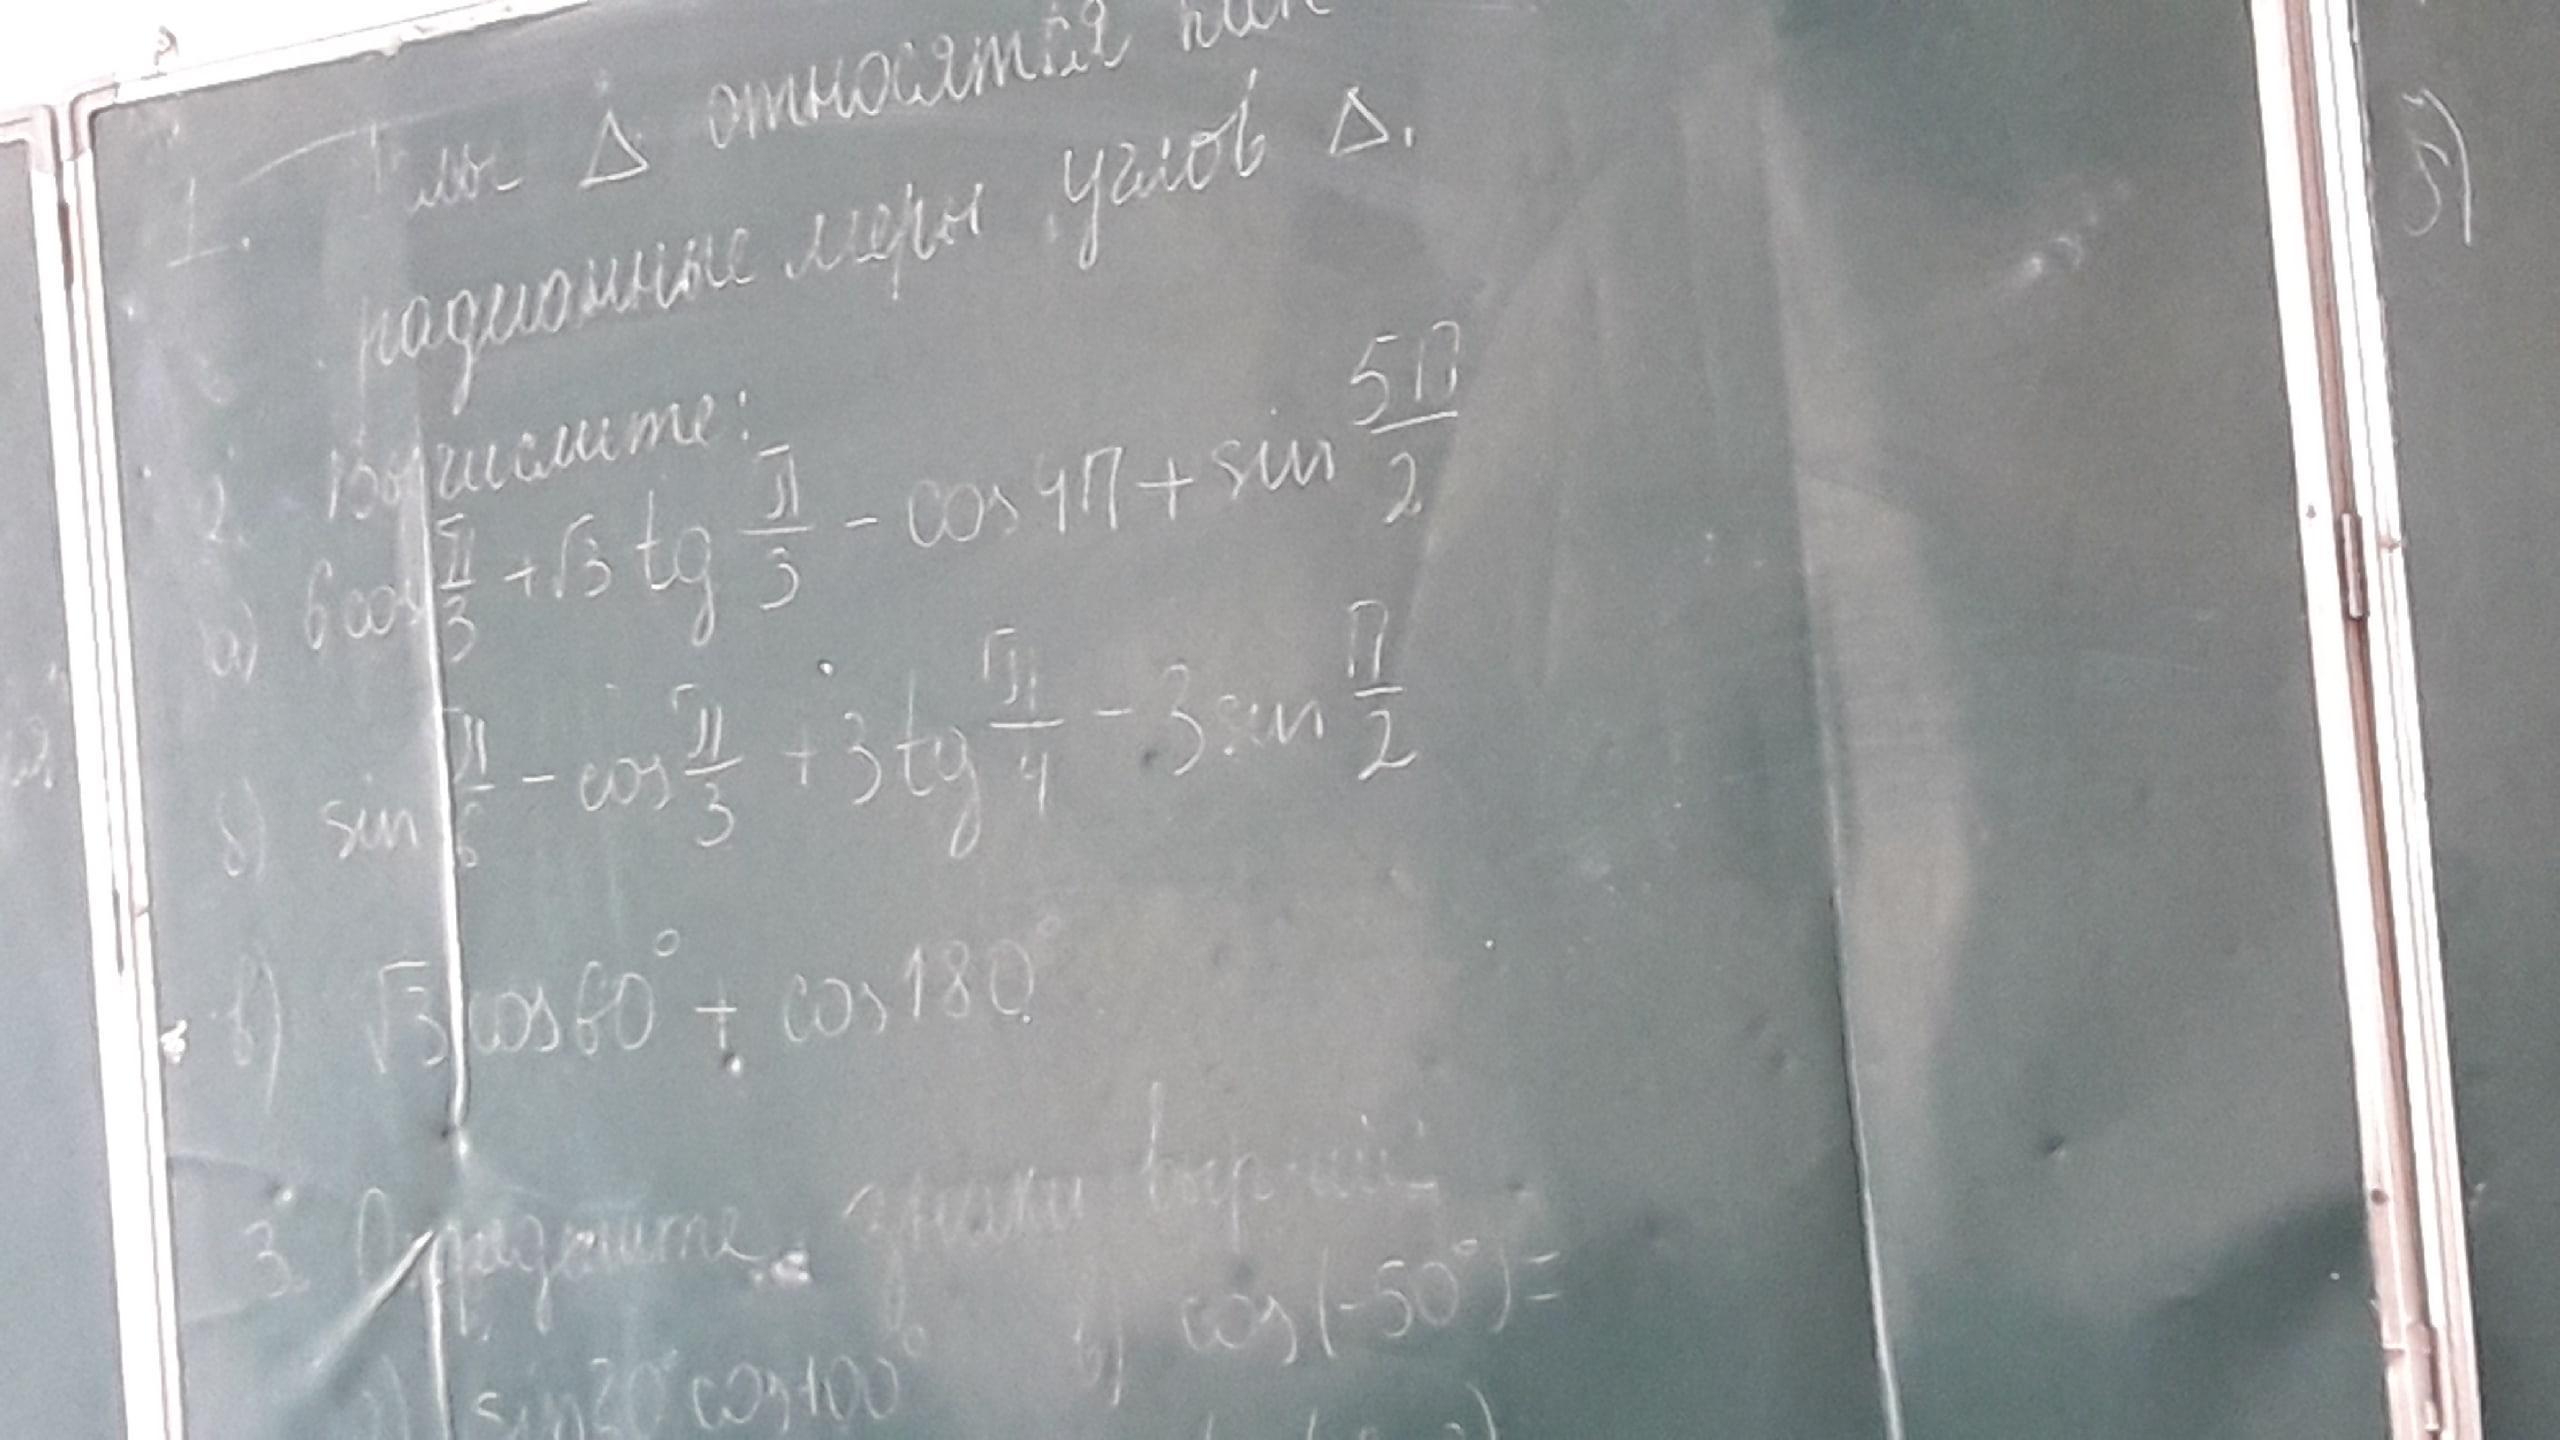 1. лы Δ относятся как
радианные меры углов Δ.
2. Вычислите:
а) 6cos π/3 + √3 tg π/3 - cos 4π + sin 5π/2
б) sin π/6 - cos π/3 + 3 tg π/4 - 3 sin π/2
в) √3 cos 60° + cos 180°
3. Определите знаки выр-ий
sin 30° cos 100° в) cos(-50°)=
б)